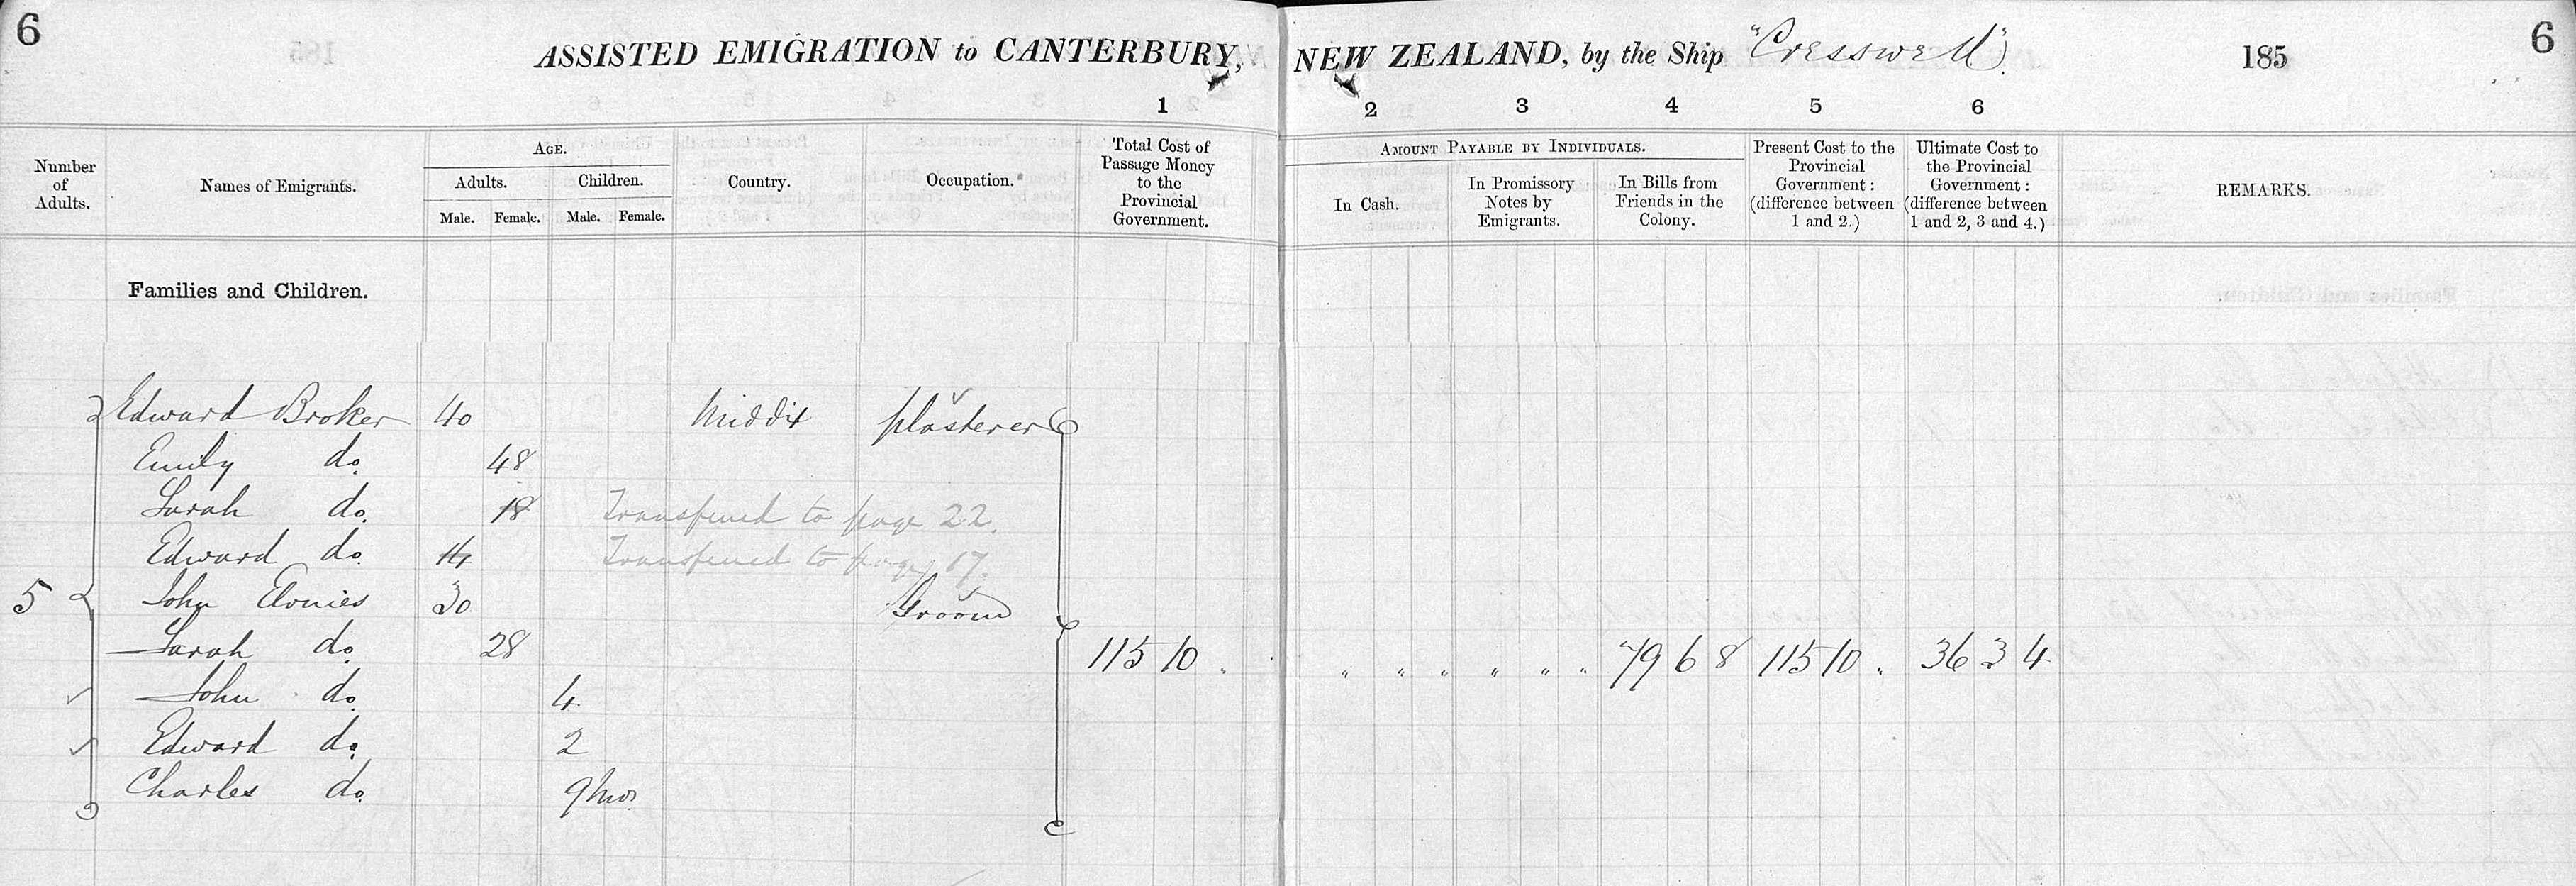 6
ASSISTED EMIGRATION to CANTERBURY, NEW ZEALAND, by the Ship "Cresswell". 185
6
1 2 3 4 5 6
Number of Adults.
Names of Emigrants.
AGE.
Adults. Children.
Male. Female. Male. Female.
Country.
Occupation.
Total Cost of Passage Money to the Provincial Government.
AMOUNT PAYABLE BY INDIVIDUALS.
In Cash.
In Promissory Notes by Emigrants.
In Bills from Friends in the Colony.
Present Cost to the Provincial Government: (difference between 1 and 2.)
Ultimate Cost to the Provincial Government: (difference between 1 and 2, 3 and 4.)
REMARKS.
Families and Children.
Edward Broker 40 Middx plasterer
Emily do. 48
Sarah do. 18 Transferred to page 22.
Edward do. 14 Transferred to page 17.
5 John 30 Groom
Sarah do. 28 115 10 " " " " " " " 79 6 8 115 10 " 36 3 4
John do. 4
Edward do. 2
Charles do. 9 mos.